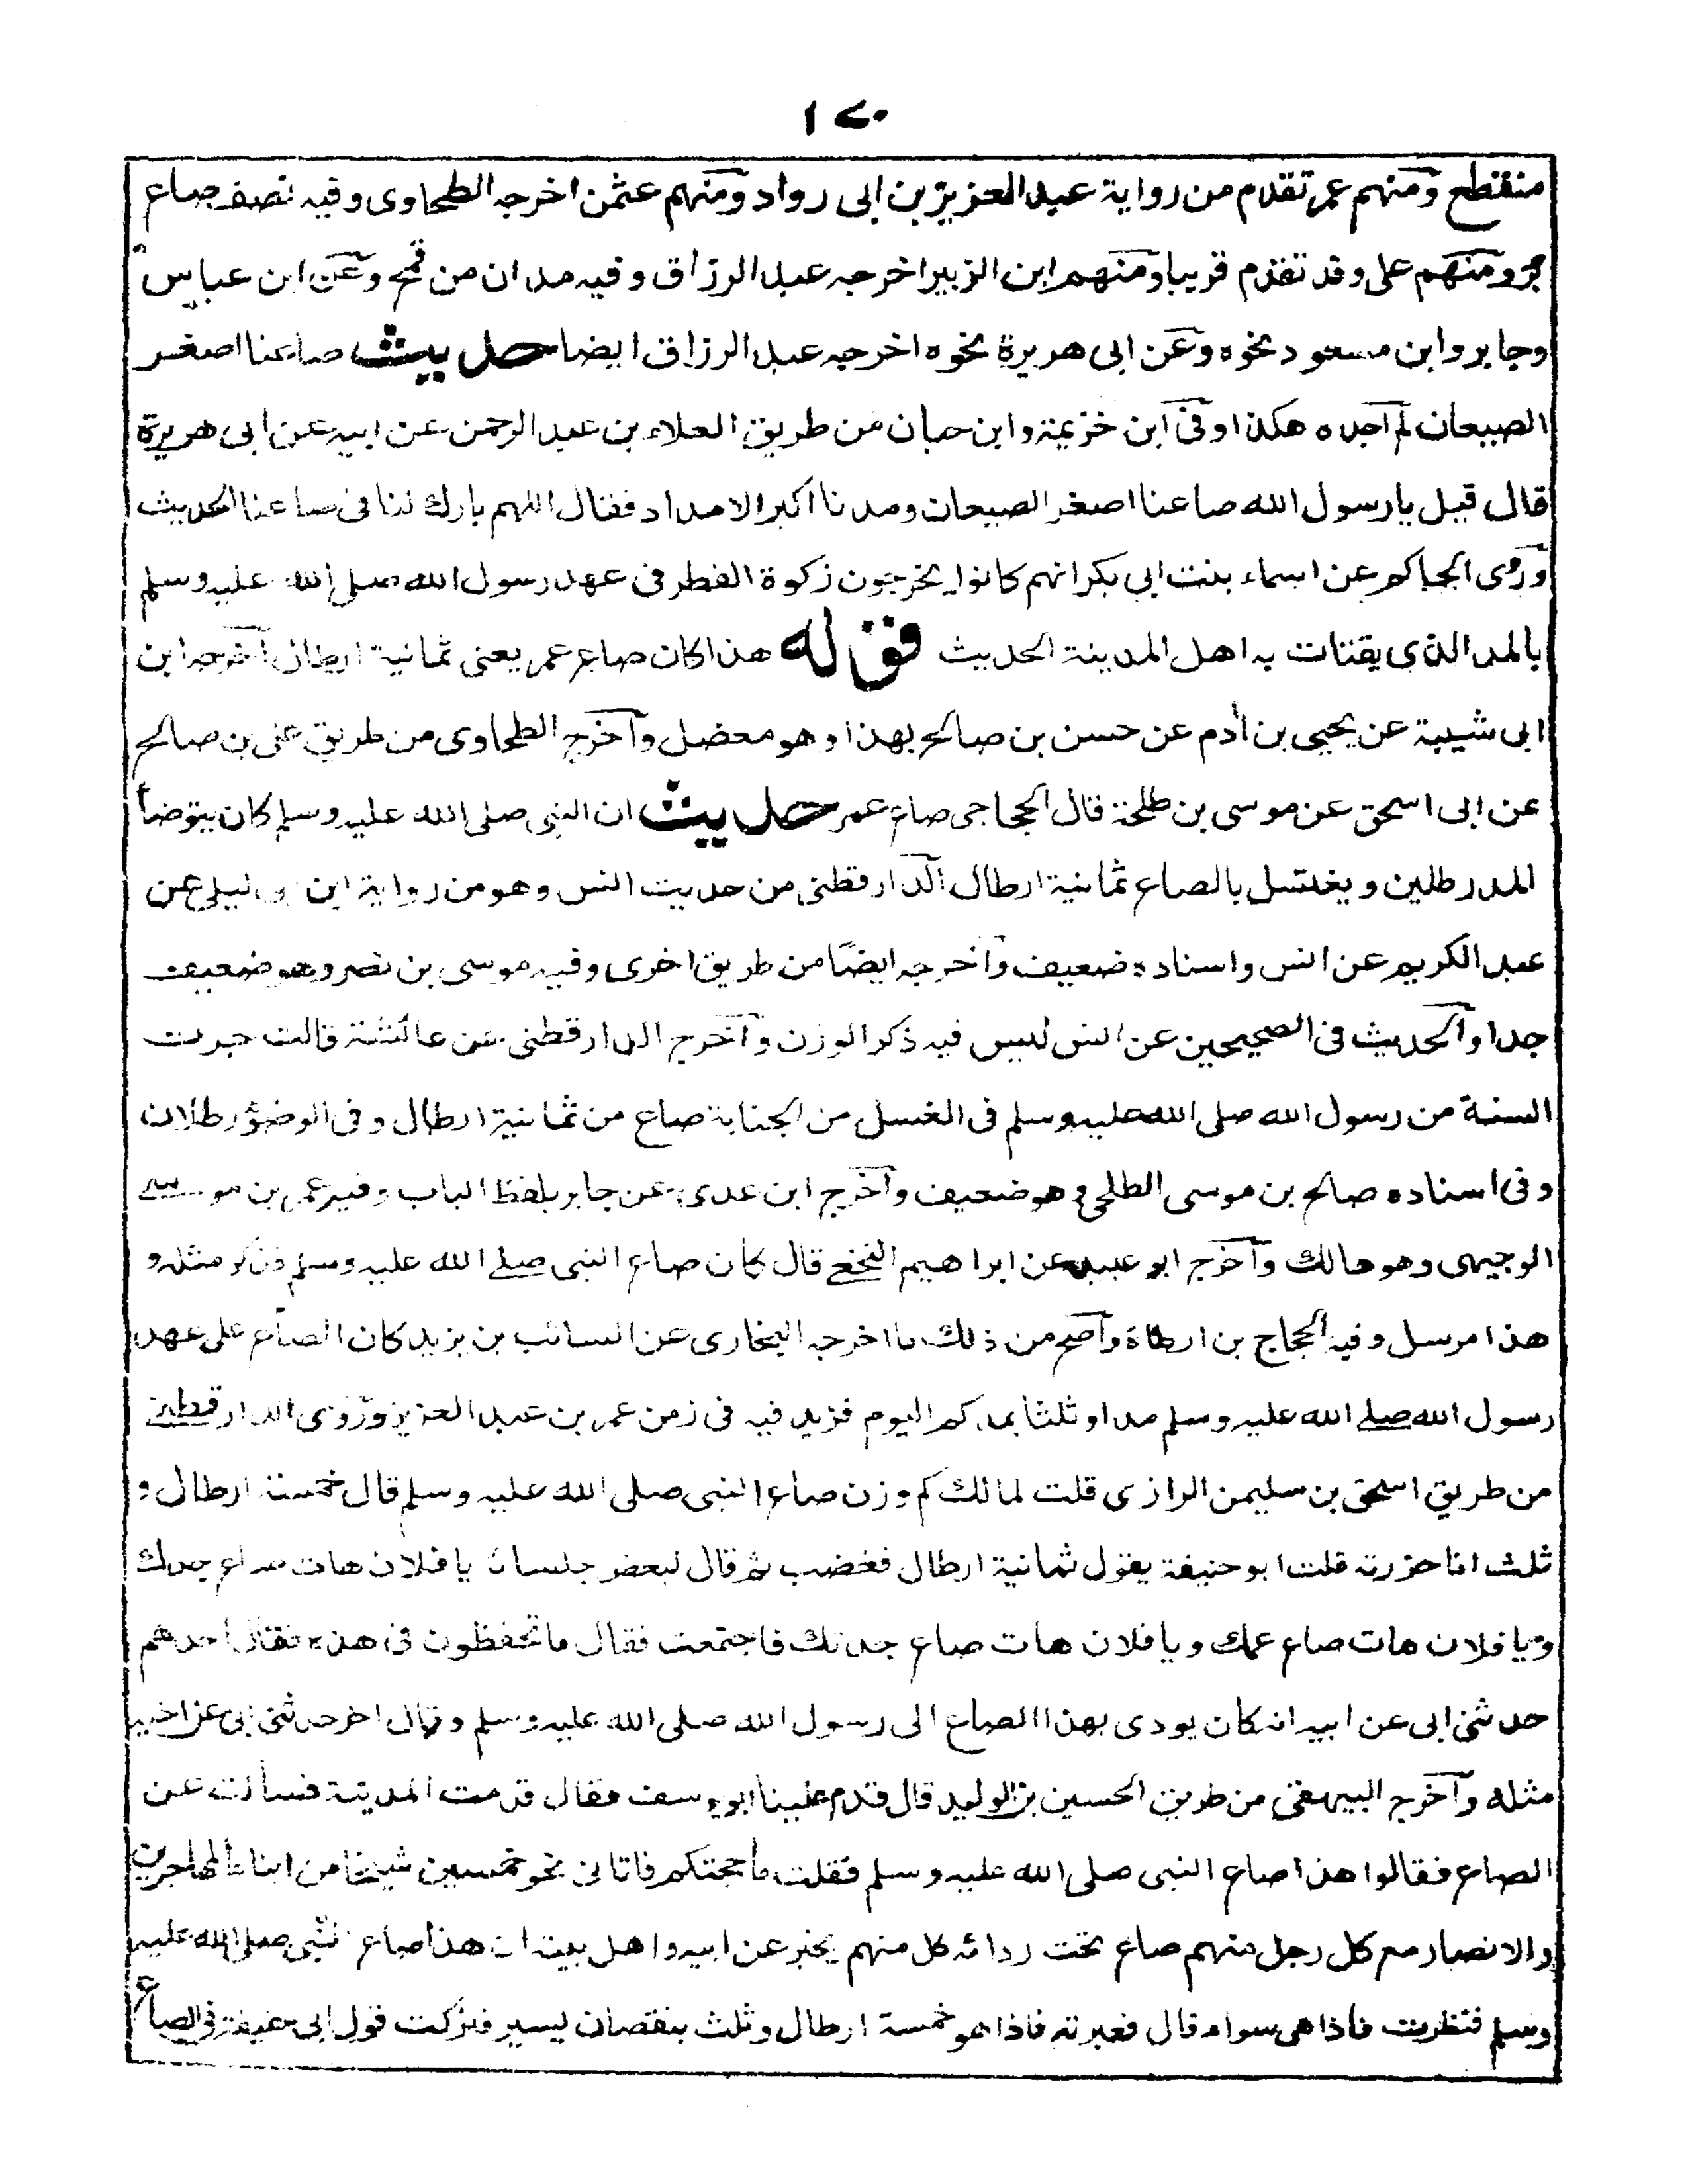 ١٧٠
منقطع ومنهم عمر تقدم من رواية عبد العزيز بن ابى رواد ومنهم عثمن اخرجه الطحاوى وفيه نصف صاع
بر ومنهم على وقد تقدم قريبا ومنهم ابن الزبير اخرجه عبد الرزاق وفيه مدان من قمح وعن ابن عباس
وجابر وابن مسعود نحوه وعن ابى هريرة نحوه اخرجه عبد الرزاق ايضا حديث صاعنا اصغر
الصيعان لم اجده هكذا وفى ابن خزيمة وابن حبان من طريق العلاء بن عبد الرحمن عن ابيه عن ابى هريرة
قال قيل يا رسول الله صاعنا اصغر الصيعان ومدنا اكبر الامداد فقال اللهم بارك لنا فى صاعنا الحديث
وروى الحاكم عن اسماء بنت ابى بكر انهم كانوا يخرجون زكوة الفطر فى عهد رسول الله صلى الله عليه وسلم
بالمد الذى يقتات به اهل المدينة الحديث قوله هذا كان صاع عمر يعنى ثمانية ارطال اخرجه ابن
ابى شيبة عن يحيى بن أدم عن حسن بن صالح بهذا وهو معضل وأخرج الطحاوى من طريق على بن صالح
عن ابى اسحق عن موسى بن طلحة قال الحجاجى صاع عمر حديث ان النبى صلى الله عليه وسلم كان يتوضأ
بالمد رطلين ويغتسل بالصاع ثمانية ارطال الدارقطنى من حديث انس وهو من رواية ابن ابى ليلى عن
عبد الكريم عن انس واسناده ضعيف وأخرجه ايضا من طريق اخرى وفيه موسى بن نصر وهو ضعيف
جدا والحديث فى الصحيحين عن انس ليس فيه ذكر الوزن وأخرج الدارقطنى عن عائشة قالت جرت
السنة من رسول الله صلى الله عليه وسلم فى الغسل من الجنابة صاع من ثمانية ارطال وفى الوضوء رطلان
وفى اسناده صالح بن موسى الطلحى وهو ضعيف وأخرج ابن عدى عن جابر بلفظ الباب وفيه عمر بن موسى
الوجيهى وهو هالك وأخرج ابو عبيد عن ابراهيم النخعى قال كان صاع النبى صلى الله عليه وسلم فذكر مثله و
هذا مرسل وفيه الحجاج بن ارطاة وأصح من ذلك ما اخرجه البخارى عن السائب بن يزيد كان الصاع على عهد
رسول الله صلى الله عليه وسلم مدا وثلثا بمدكم اليوم فزيد فيه فى زمن عمر بن عبد العزيز وروى الدارقطنى
من طريق اسحق بن سليمن الرازى قلت لمالك كم وزن صاع النبى صلى الله عليه وسلم قال خمسة ارطال و
ثلث انا حزرته قلت ابو حنيفة يقول ثمانية ارطال فغضب ثم قال لبعض جلسائه يا فلان هات صاع جدك
ويا فلان هات صاع عمك ويا فلان هات صاع جدتك فاجتمعت فقال ما تحفظون فى هذه فقال احدهم
حدثنى ابى عن ابيه انه كان يودى بهذا الصاع الى رسول الله صلى الله عليه وسلم وقال اخر حدثنى ابى عن اخيه
مثله وأخرج البيهقى من طريق الحسين بن الوليد قال قدم علينا ابو يوسف فقال قدمت المدينة فسألت عن
الصاع فقالوا هذا صاع النبى صلى الله عليه وسلم فقلت ما حجتكم فاتانى نحو خمسين شيخا من ابناء المهاجرين
والانصار مع كل رجل منهم صاع تحت ردائه كل منهم يخبر عن ابيه واهل بيته ان هذا صاع النبى صلى الله عليه
وسلم فنظرت فاذا هى سواء قال فعبرته فاذا هو خمسة ارطال وثلث بنقصان يسير فتركت قول ابى حنيفة فى الصاع